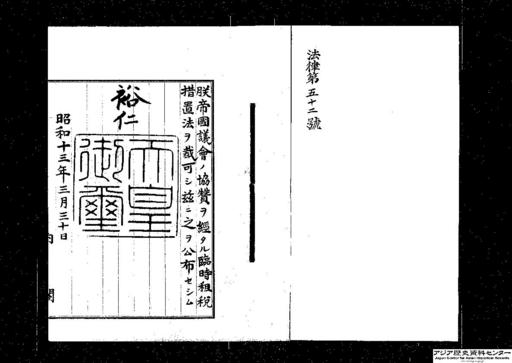 法律第五十二號
朕帝國議會ノ協贊ヲ經タル臨時租稅
措置法ヲ裁可シ茲ニ之ヲ公布セシム
裕仁
天皇
御璽
昭和十三年三月三十日
内閣
アジア歴史資料センター
Japan Center for Asian Historical Records